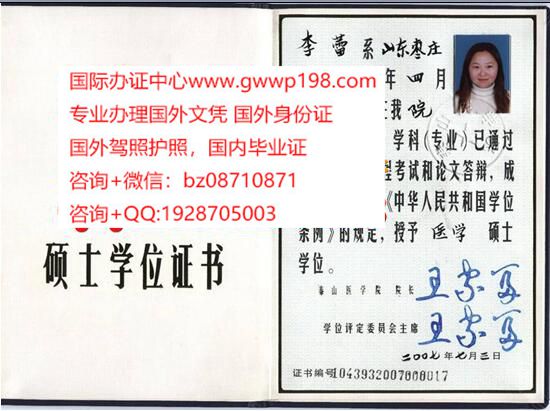 国际办证中心www.gwwp198.com
专业办理国外文凭 国外身份证
国外驾照护照，国内毕业证
咨询+微信：bz08710871
咨询+QQ:1928705003
硕士学位证书
李蕾系山东枣庄
年四月
我院
学科(专业)已通过
考试和论文答辩，成
《中华人民共和国学位
条例》的规定，授予 医学 硕士
学位。
泰山医学院 院长
学位评定委员会主席
二〇〇七年七月三日
证书编号1043932007000017